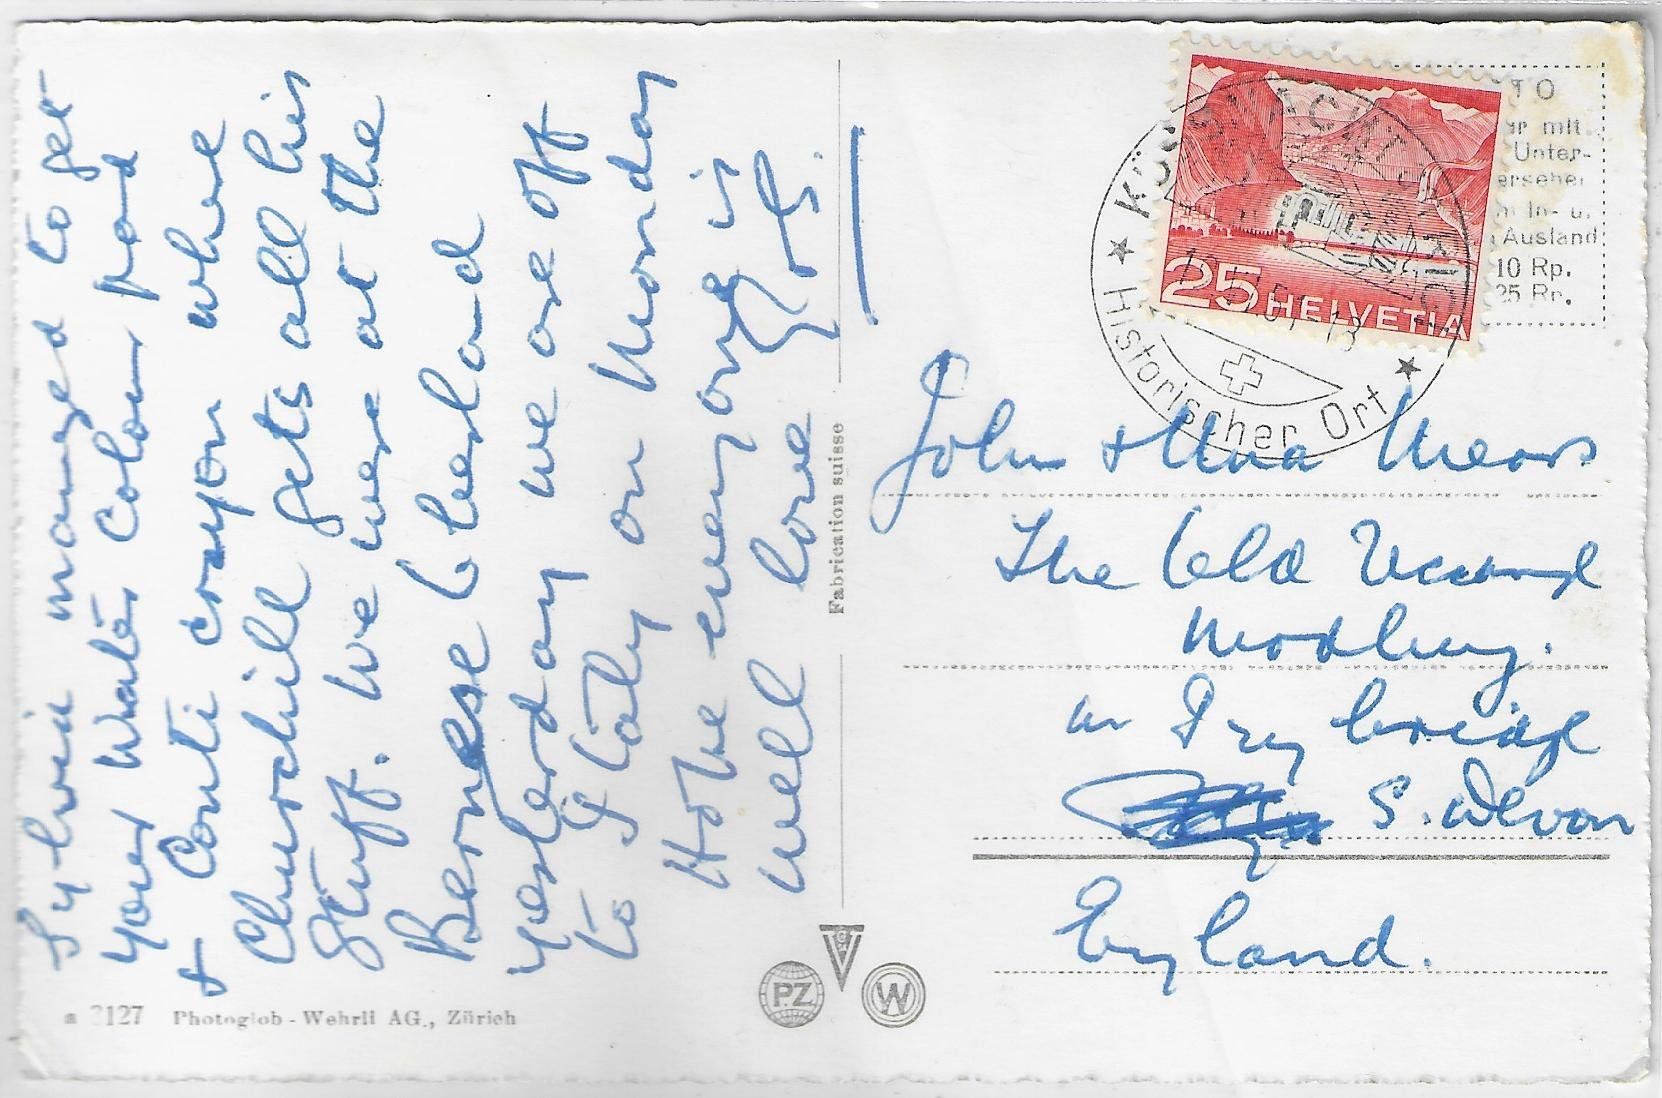 Sylvia managed to get
your water colour pad
& Conti crayon where
Churchill gets all his
stuff. We were at the
Bernese Oberland
yesterday we are off
to Italy on Monday
Hope everyone is
well love
Fabrication suisse
n 3127 Photoglob - Wehrli AG., Zürich
PZ
W
TO
mit
Unter-
In- u.
Ausland
10 Rp.
25 Rp.
25 HELVETIA
Historischer Ort
John & Una Mears
The Old Vicarage
Modbury.
nr Ivybridge
S. Devon
England.